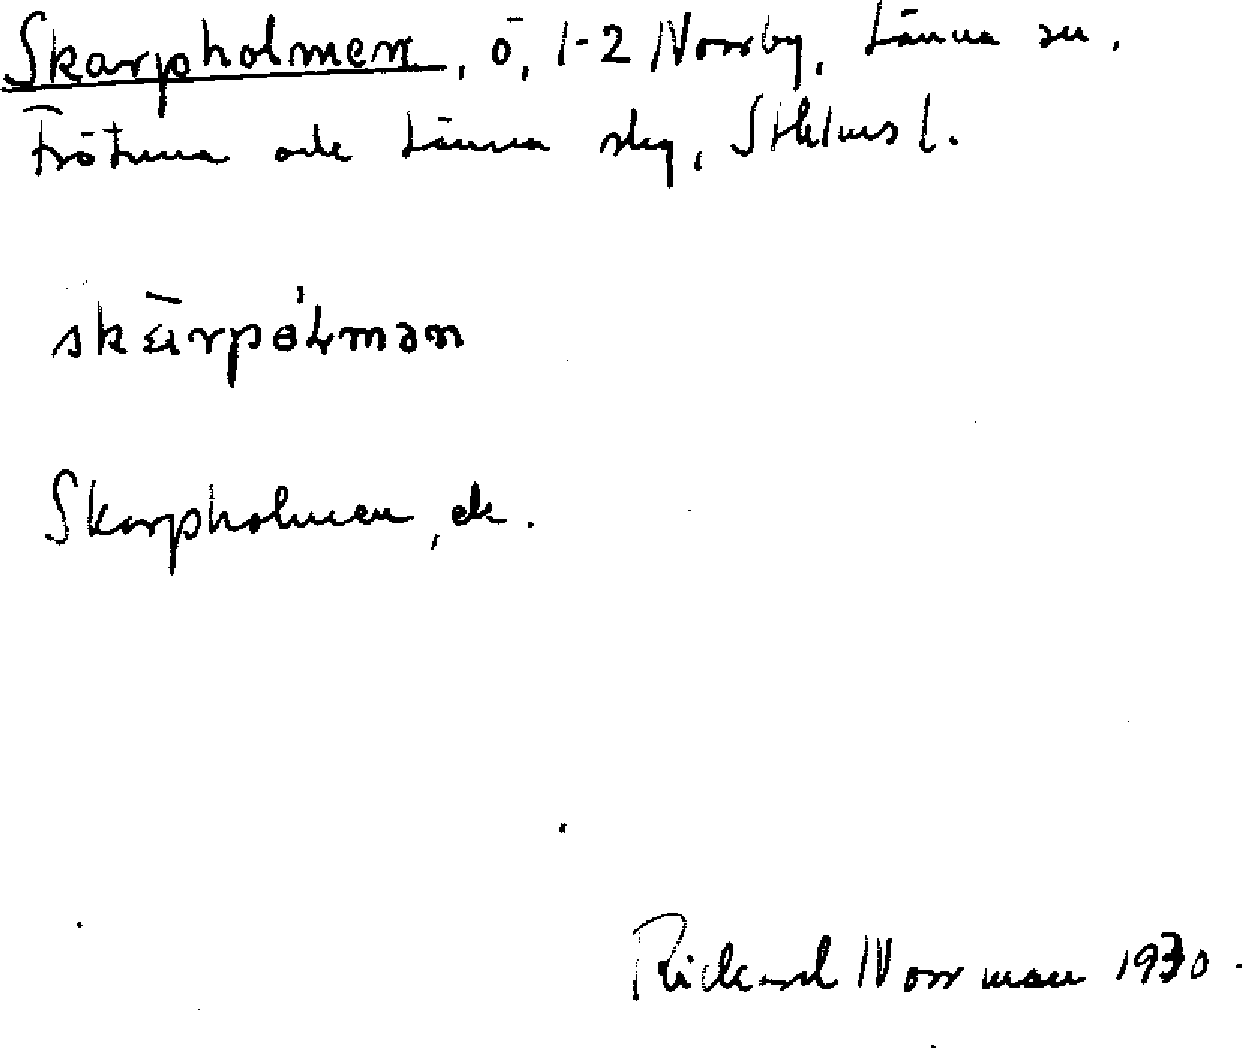 Skarpholmen, ö, 1-2 Norrby, Länna sn.
Frötuna och Länna skg, Sthlms l.
skàrpólmən
Skarpholmen, ek.
Rickard Norrman 1930.